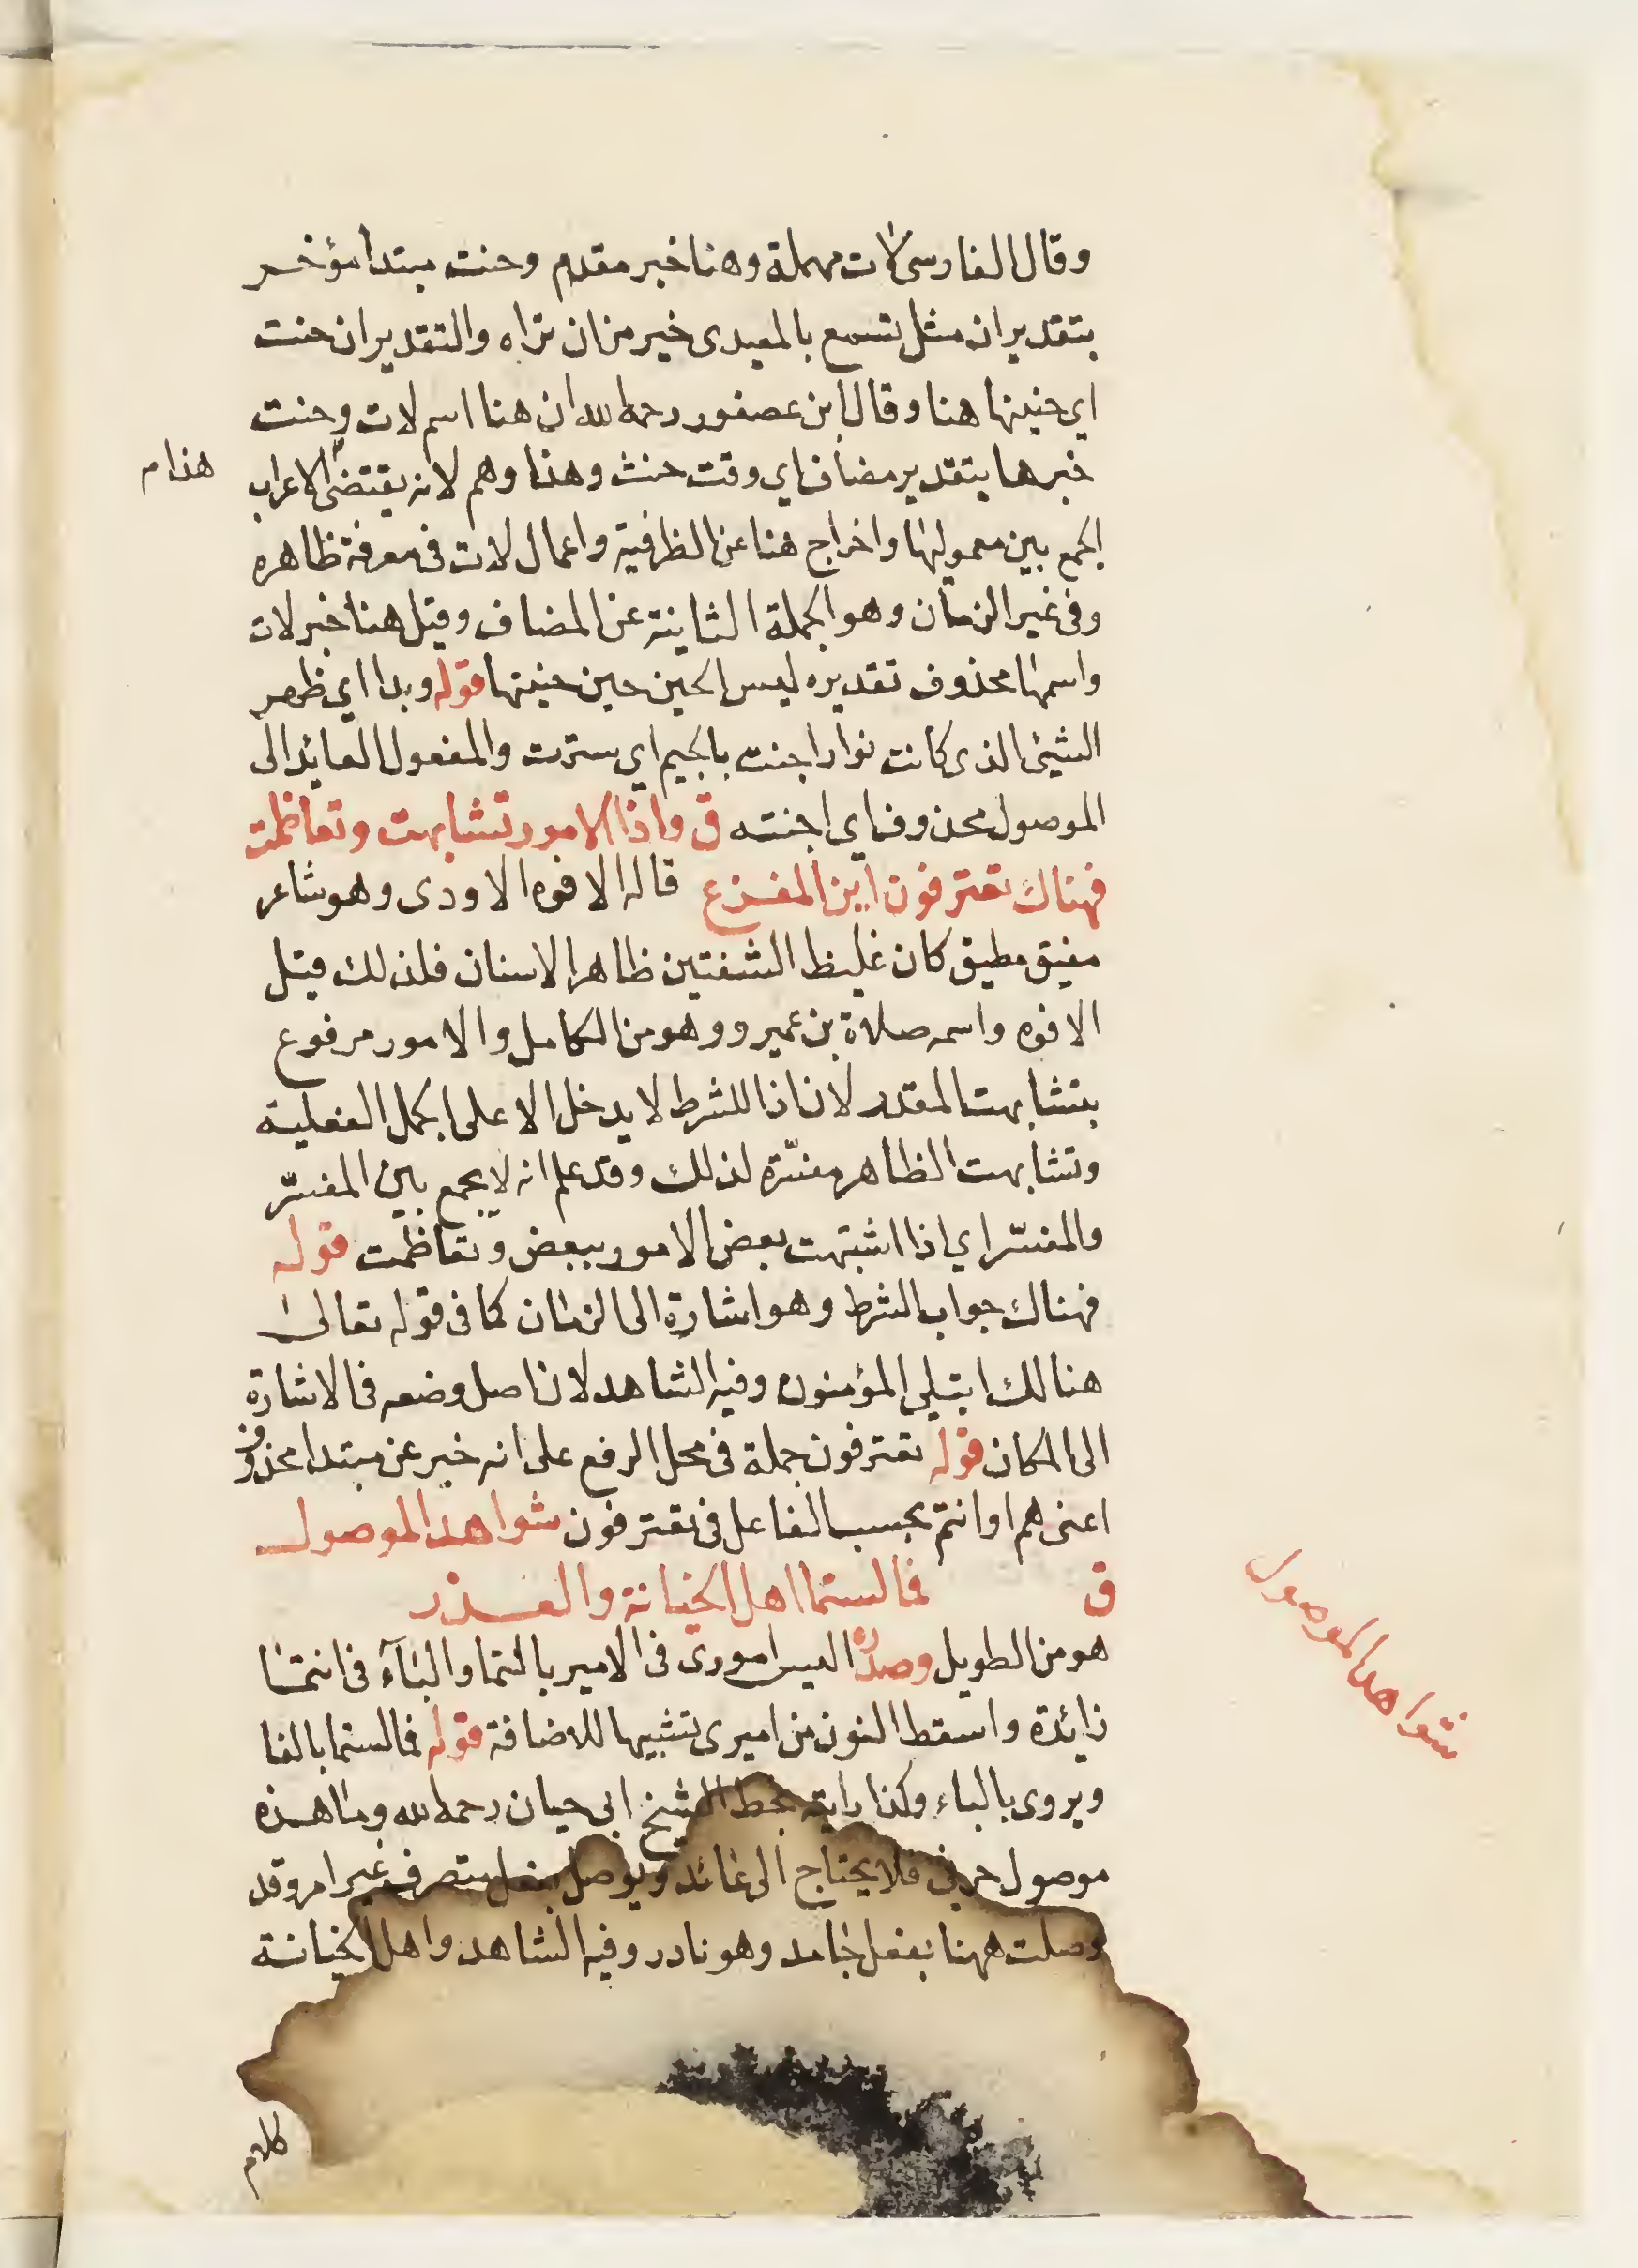 وقال الفارسى لات مهملة وهنا خبر مقدم وحنت مبتدا مؤخر
بتقدير ان مثل تسمع بالمعيدى خير من ان تراه والتقدير ان حنت
اي حنينها هنا وقال ابن عصفور رحمه الله ان هنا اسم لات وحنت
خبرها بتقدير مضاف اي وقت حنت وهذا وهم لانه يقتضى الاعراب
هذا م
الجمع بين معموليها واخراج هنا عن الظرفية واعمال لات فى معرفة ظاهره
وفى غير الزمان وهو الجملة الثانية عن المضاف وقيل هنا خبر لات
واسمها محذوف تقديره ليس الحين حين حنينها قوله وبدا اي ظهر
الشيئ الذى كانت نوار اجنت بالجيم اي سترت والمفعول العايد الى
الموصول محذوف اي اجنته ق واذا الامور تشابهت وتعاظمت
فهناك تعترفون اين المفزع قاله الافوه الاودى وهو شاعر
مفيق مطيق كان غليظ الشفتين ظاهر الاسنان فلذلك قيل
الافوه واسمه صلاة بن عميرو وهو من الكامل والامور مرفوع
بتشابهت المقدر لان اذا للشرط لا يدخل الا على الجمل الفعلية
وتشابهت الظاهر مفسّرة لذلك وقد علم انه لا يجمع بين المفسّر
والمفسّر اي اذا اشتبهت بعض الامور ببعض وتعاظمت قوله
فهناك جواب الشرط وهو اشارة الى الزمان كما فى قوله تعالى
هنالك ابتلي المؤمنون وفيه الشاهد لان اصل وضعه فى الاشارة
الى المكان قوله تعترفون جملة فى محل الرفع على انه خبر عن مبتدا محذوف
اعنى هم او انتم بحسب الفاعل فى تعترفون شواهد الموصول
ق فما لستما اهل الخيانة والغدر
شواهد الموصول
هو من الطويل وصدره اليس اموري فى الامير بالتما والباء فى انتما
زائدة واسقط النون من اميرى تشبيها للاضافة قوله فما لستما بالفا
ويروى بالباء وكذا رايته بخط الشيخ ابى حيان رحمه الله وما هذه
موصول حرفي فلا يحتاج الى عائد ويوصل بفعل متصرف غير امر وقد
وصلت ههنا بفعل جامد وهو نادر وفيه الشاهد واهل الخيانة
كلام